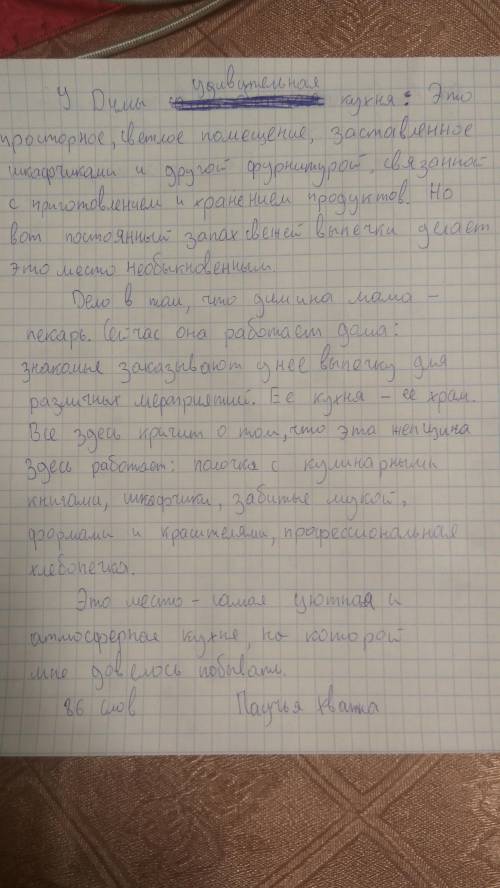 У Димы удивительная кухня: Это
просторное, светлое помещение, заставленное
шкафчиками и другой фурнитурой, связанной
с приготовлением и хранением продуктов. Но
вот постоянный запах свежей выпечки делает
это место необыкновенным.
Дело в том, что димина мама -
пекарь. Сейчас она работает дома:
знакомые заказывают у нее выпечку для
различных мероприятий. Ее кухня - ее храм.
Все здесь кричит о том, что эта женщина
здесь работает: полочка с кулинарными
книгами, шкафчики, забитые мукой,
формами и красителями, профессиональная
хлебопечка.
Это место - самая уютная и
атмосферная кухня, на которой
мне довелось побывать.
86 слов Паучья хватка